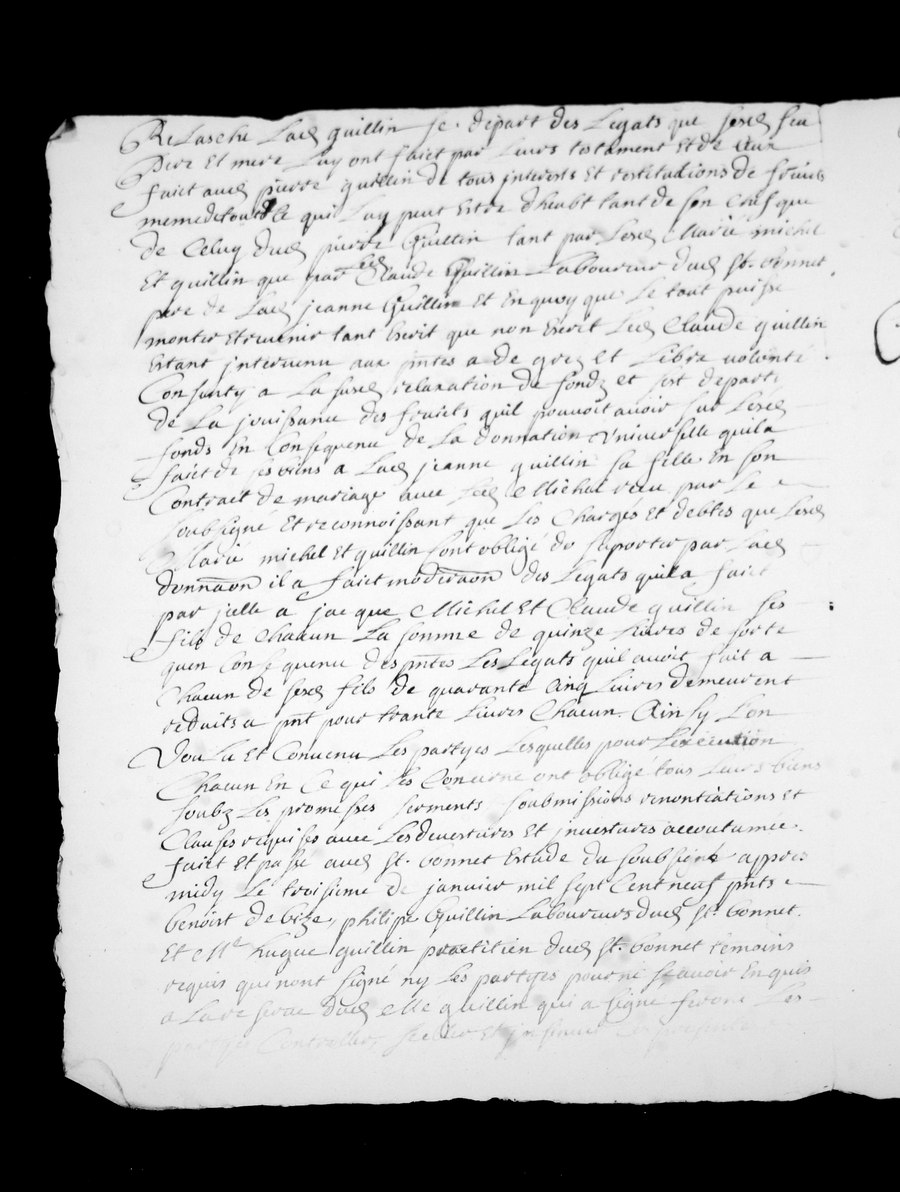 Relasche Lad quillin se depart des Legats que sesd feu
Pere Et mere Luy ont faict par Leurs testament Et de ceux
faict aud pierre quillin de tous interests Et restitutions de fruicts
meme de tout ce qui Luy peut Estre dheubt tant de son Chef que
de Celuy dud pierre Guillin tant par Lesd Marie michel
Et quillin que par led Claude Guillin Laboureur dud st. bonnet
pere de Lad jeanne Guillin Et En quoy que Le tout puisse
monter Et revenir tant Escrit que non Escrit Led Claude quillin
Estant jntervenu aux pntes a de grez Et Libre volonté
Consenty a La susd relaxation de fondz et sest departi
de La jouissance des fruicts quil pouvoit avoir sur Lesd
fonds En Consequence de La donnation Universelle quil a
faict de ses biens a Lad jeanne quillin sa fille En son
Contrait de mariage avec Led Michel receu par Le
soubsigné Et reconnoissant que Les Charges Et debtes que Lesd
Marie michel Et quillin sont obligé de suporter par Lad
donnaon il a faict moderaon des Legats quil a faict
par jcelle a jacque Michel Et Claude quillin ses
fils de Chacun La somme de quinze Livres de sorte
quen Consequence des pntes Les Legats quil avoit fait a
Chacun de sesd fils de quarante Cinq Livres demeurent
reduits a pnt pour trante Livres Chacun. Ainsy Lon
Voulu Et Convenu Les partyes Lesquelles pour Lexecution
Chacun En Ce qui Les Concerne ont obligé tous Leurs biens
soubz Les promesses serments soubmissions renontiations Et
Clauses requises avec Les devestures Et jnvestures accoutumee.
faict Et passé aud st. bonnet Estude du soubsigné appres
midy Le troisieme de janvier mil sept Cent neuf pnts
benoist de bize, philipe Guillin Laboureurs dud st. bonnet.
Et Me hugue quillin practitien dud st. bonnet temoins
requis qui nont signé ny Les partyes pour ne scavoir Enquis
a La reserve dud Me quillin qui a signe feront Les
partyes Controller, sceller Et jnsinuer